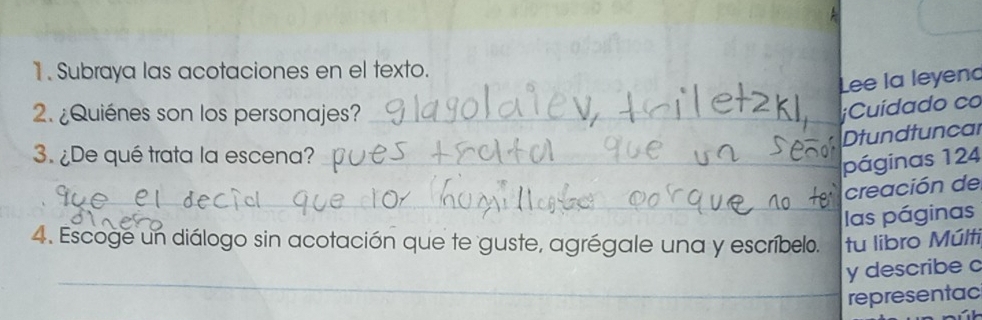 1. Subraya las acotaciones en el texto.
2. ¿Quiénes son los personajes? glagolaiev, triletzki,
3. ¿De qué trata la escena? pues trata que un señor
que el decia que lo humillaba porque no te
dinero
4. Escoge un diálogo sin acotación que te guste, agrégale una y escríbelo.
Lee la leyend
¡Cuidado co
Dtundtuncan
páginas 124
creación de
las páginas
tu libro Múlti
y describe c
representac